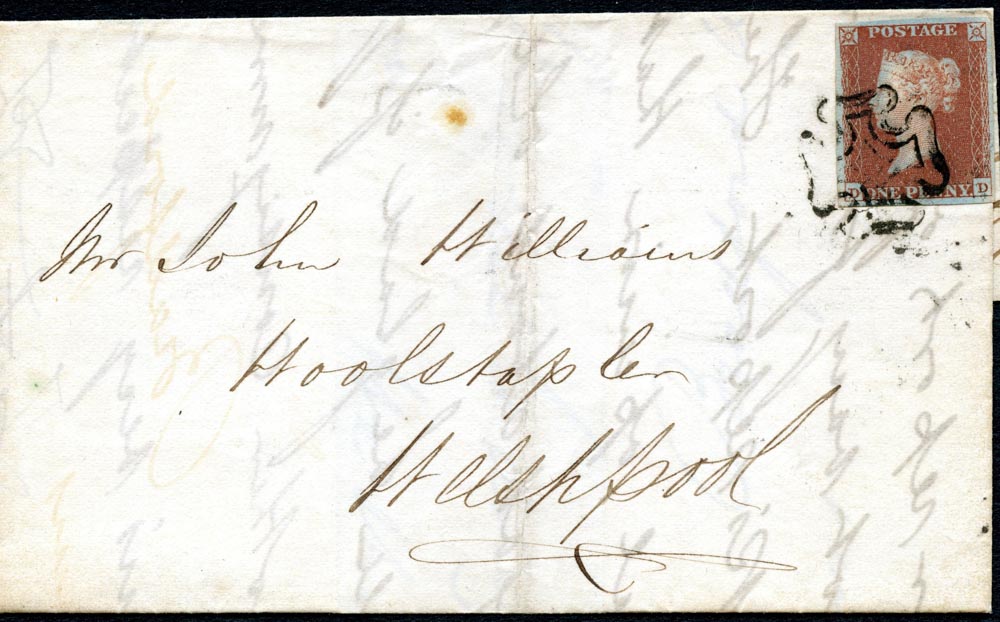 POSTAGE
D ONE PENNY D
Mr John Williams
Woolstapler
Welshpool